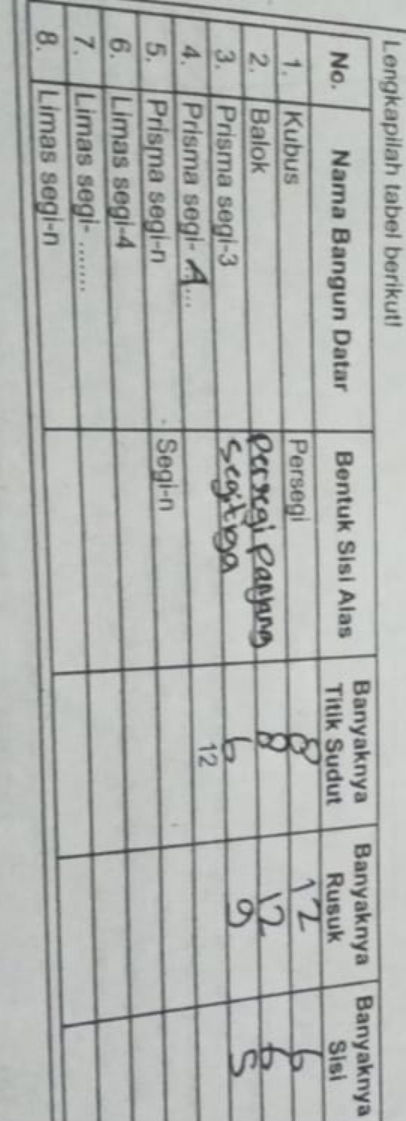 Lengkapilah tabel berikut!
No. Nama Bangun Datar Bentuk Sisi Alas Banyaknya Titik Sudut Banyaknya Rusuk Banyaknya Sisi
1. Kubus Persegi 8 12 6
2. Balok Persegi panjang 8 12 6
3. Prisma segi-3 segitiga 6 9 5
4. Prisma segi-... 12
5. Prisma segi-n Segi-n
6. Limas segi-4
7. Limas segi-.......
8. Limas segi-n